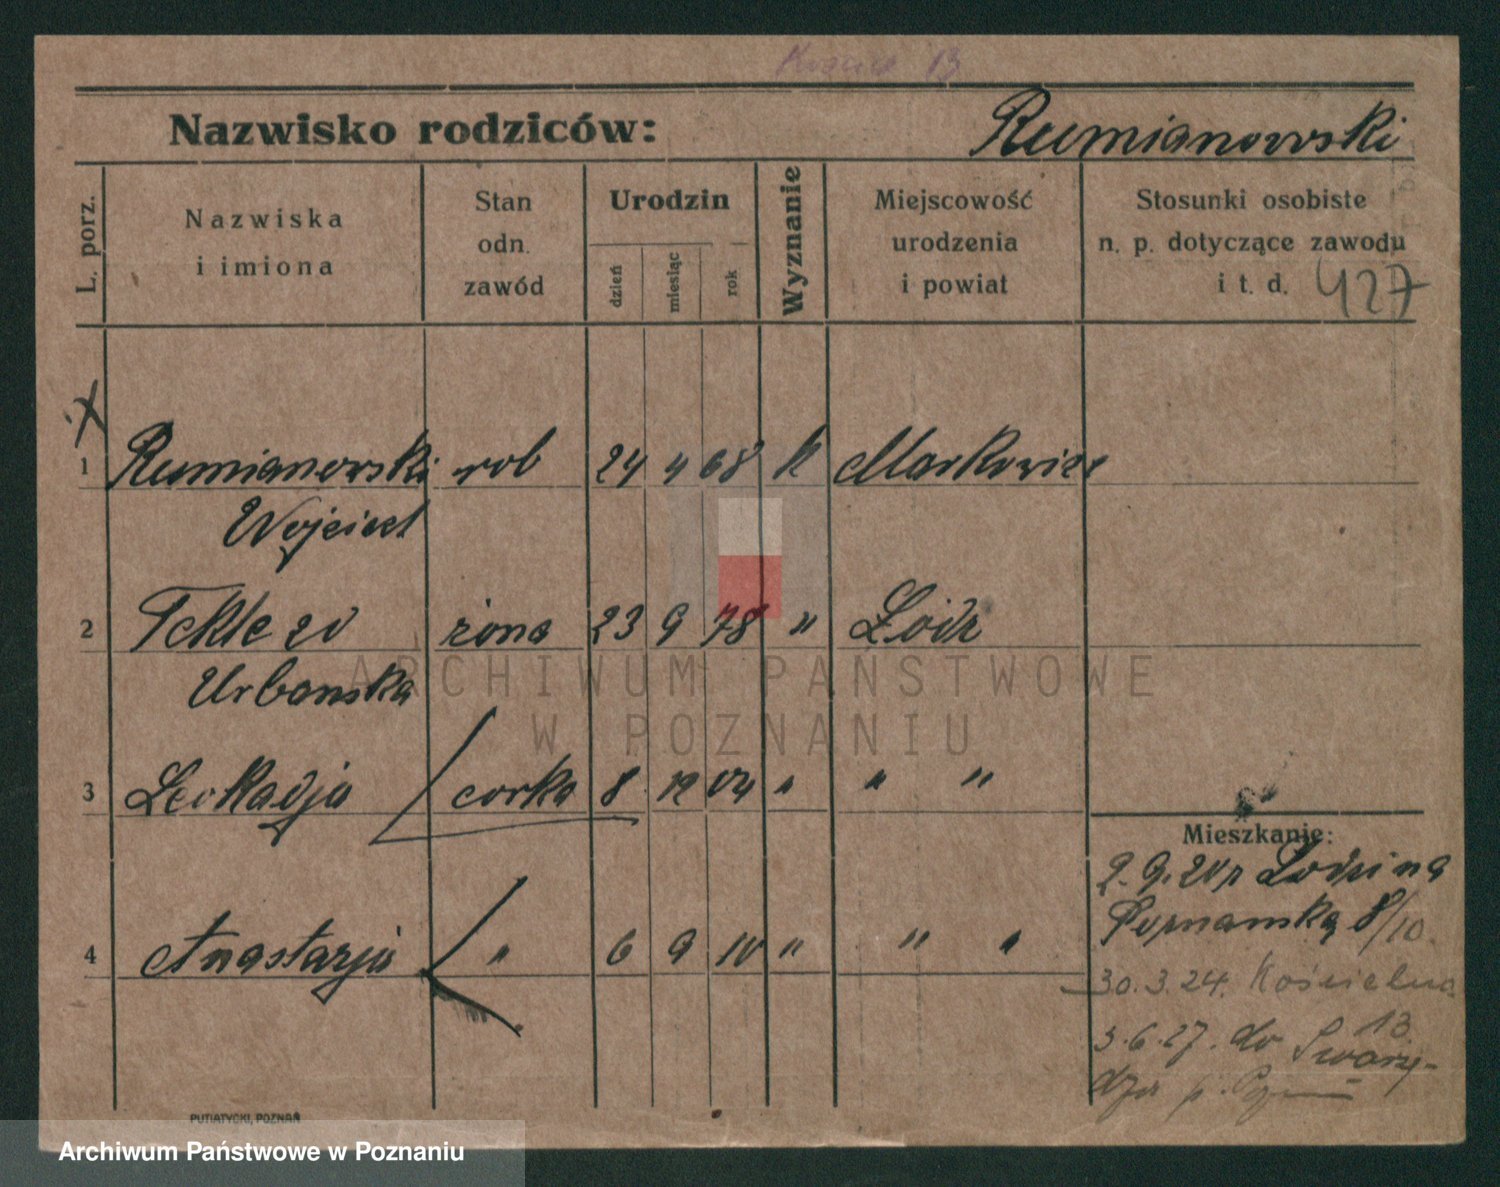 13
Nazwisko rodziców: Rumianowski
L. porz.
Nazwiska
i imiona
Stan
odn.
zawód
Urodzin
dzień
miesiąc
rok
Wyznanie
Miejscowość
urodzenia
i powiat
Stosunki osobiste
n. p. dotyczące zawodu
i t. d. 427
X
1 Rumianowski rob 24 4 68 k Markowice
Wojciech
2 Tekle zd żona 23 9 78 " Łódz
Urbanska
3 Leokadja corka 8 12 04 " " "
4 Anastazja " 6 9 10 " " "
Mieszkanie:
2.9.20 z Łodzi na
Poznanską 8/10.
30.3.24. Kościelna
13
3.6.27. do Swarzę-
dza p.
PUTIATYCKI, POZNAŃ
ARCHIWUM PAŃSTWOWE
W POZNANIU
Archiwum Państwowe w Poznaniu